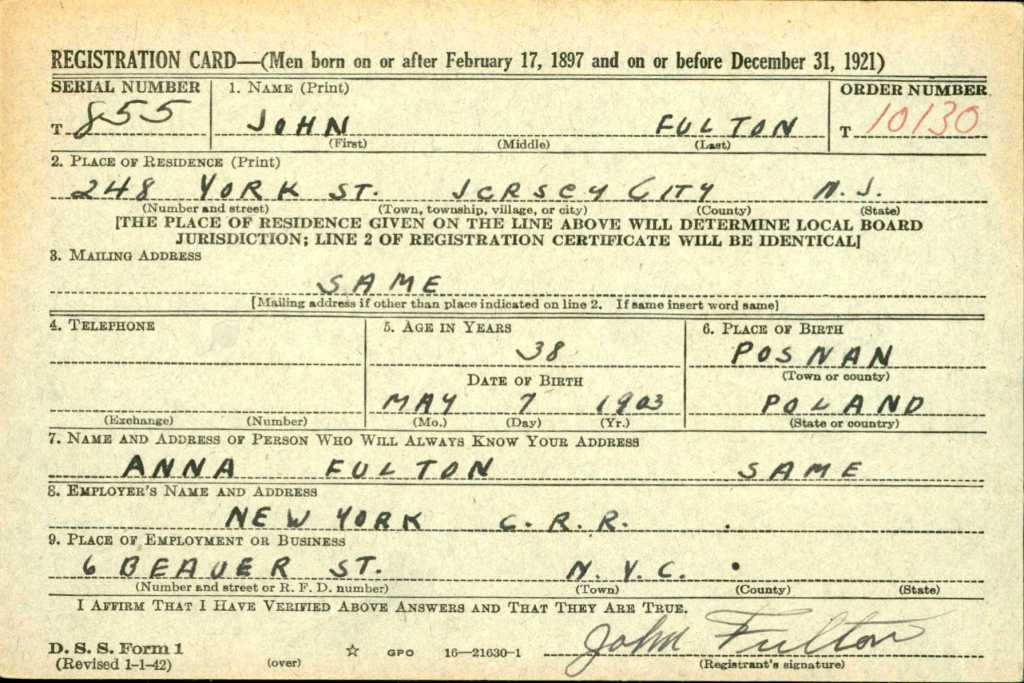 REGISTRATION CARD—(Men born on or after February 17, 1897 and on or before December 31, 1921)
SERIAL NUMBER 1. NAME (Print) ORDER NUMBER
T 855 JOHN FULTON T 10130
(First) (Middle) (Last)
2. PLACE OF RESIDENCE (Print)
248 YORK ST. JERSEY CITY N.J.
(Number and street) (Town, township, village, or city) (County) (State)
[THE PLACE OF RESIDENCE GIVEN ON THE LINE ABOVE WILL DETERMINE LOCAL BOARD
JURISDICTION; LINE 2 OF REGISTRATION CERTIFICATE WILL BE IDENTICAL]
3. MAILING ADDRESS
SAME
[Mailing address if other than place indicated on line 2. If same insert word same]
4. TELEPHONE 5. AGE IN YEARS 6. PLACE OF BIRTH
38 POSNAN
(Town or county)
DATE OF BIRTH
MAY 7 1903 POLAND
(Exchange) (Number) (Mo.) (Day) (Yr.) (State or country)
7. NAME AND ADDRESS OF PERSON WHO WILL ALWAYS KNOW YOUR ADDRESS
ANNA FULTON SAME
8. EMPLOYER'S NAME AND ADDRESS
NEW YORK C.R.R.
9. PLACE OF EMPLOYMENT OR BUSINESS
6 BEAVER ST. N.Y.C.
(Number and street or R. F. D. number) (Town) (County) (State)
I AFFIRM THAT I HAVE VERIFIED ABOVE ANSWERS AND THAT THEY ARE TRUE.
John Fulton
D. S. S. Form 1
(Revised 1-1-42) (over) ☆ GPO 16—21630-1 (Registrant's signature)